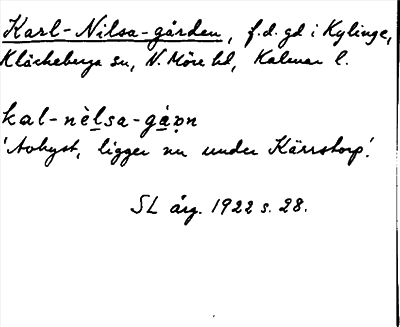 Karl-Nilsa-gården, f.d. gd i Kylinge,
Kläckeberga sn, N. Möre hd, Kalmar l.
kal-nèlsa-gáɒn
'Avhyst, ligger nu under Kärrstorp.'
SL årg. 1922 s. 28.